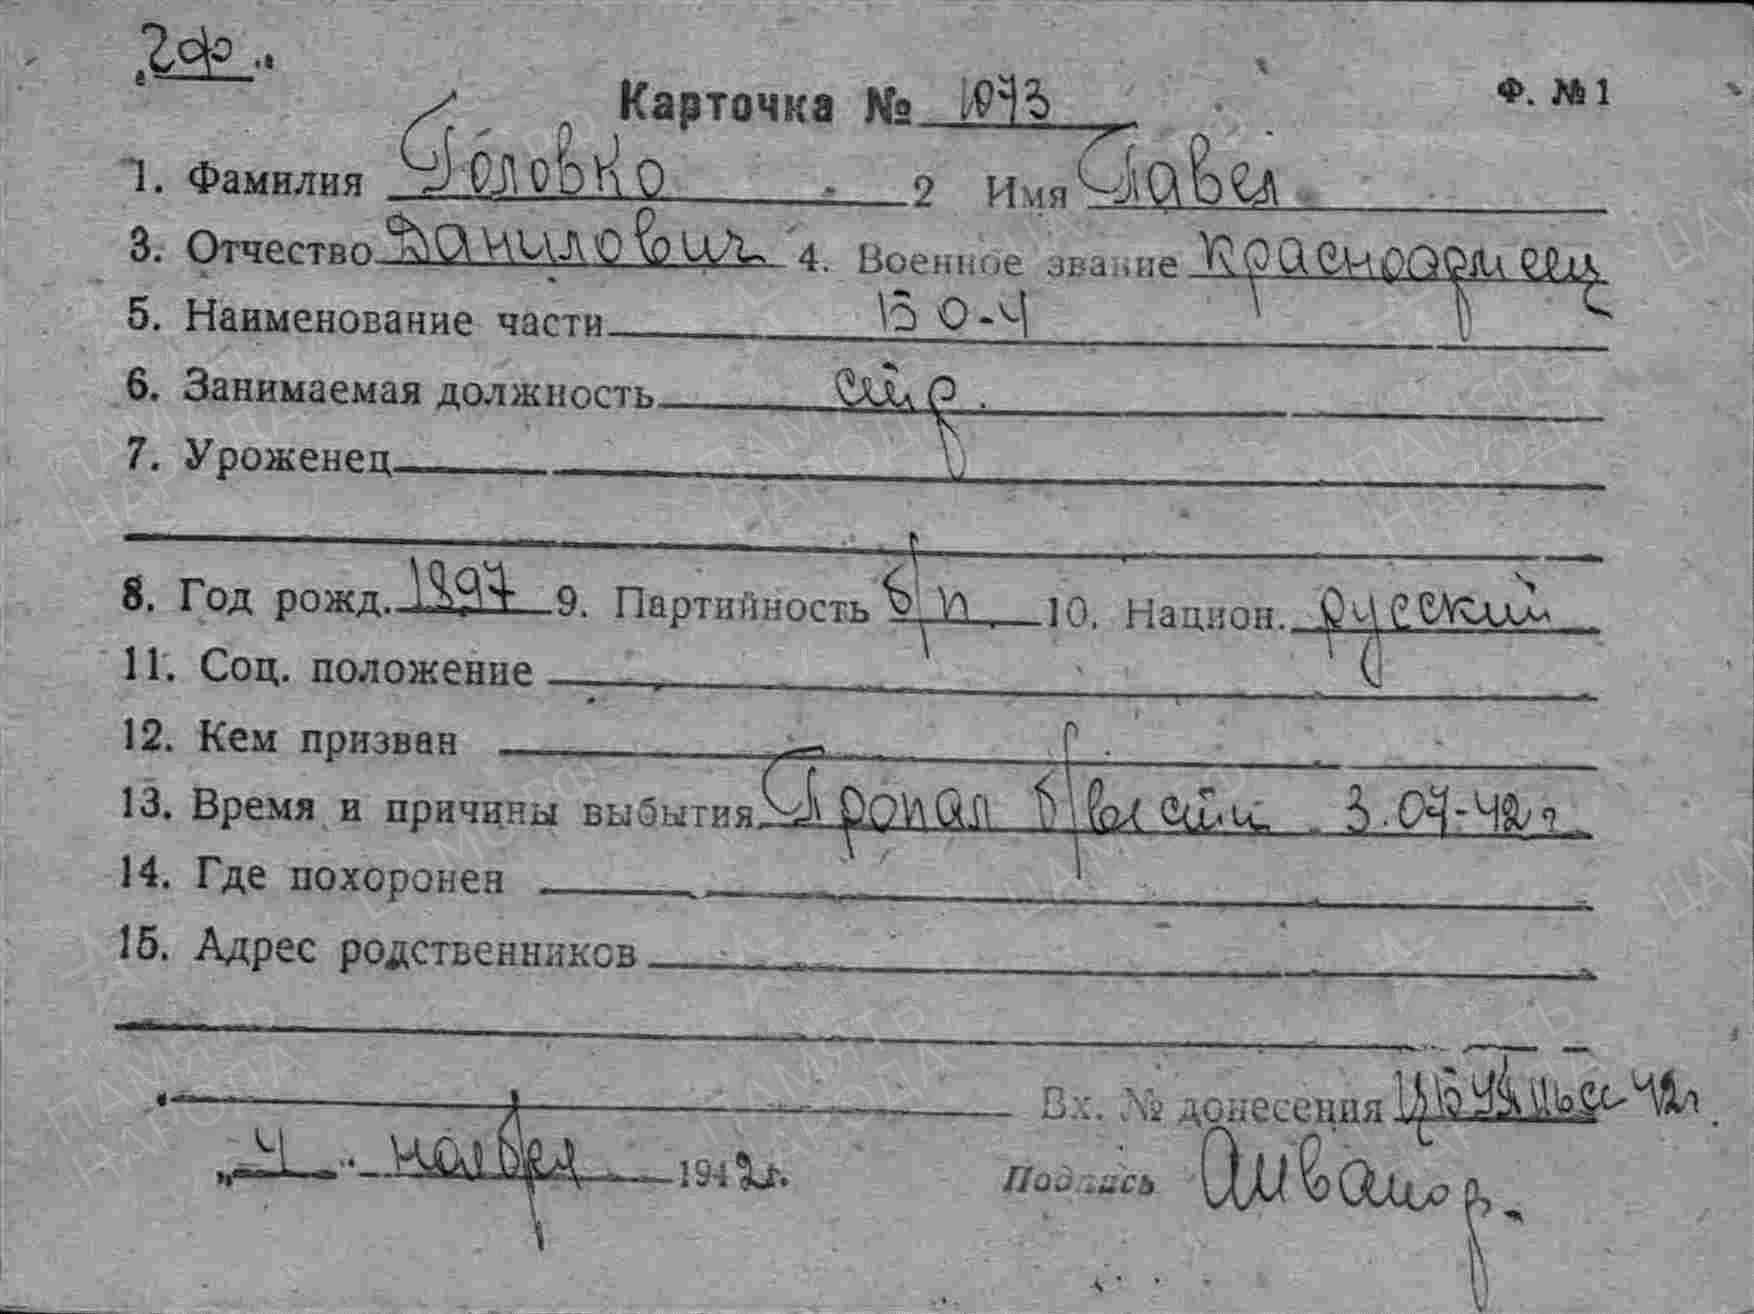 2ф.
Карточка № 1073 Ф. №1
1. Фамилия Головко 2 Имя Павел
3. Отчество Данилович 4. Военное звание Красноармеец
5. Наименование части 150-4
6. Занимаемая должность стр.
7. Уроженец
8. Год рожд. 1897 9. Партийность б/п. 10. Национ. русский
11. Соц. положение
12. Кем призван
13. Время и причины выбытия Пропал б/вести 3.07-42г
14. Где похоронен
15. Адрес родственников
Вх. № донесения 42г.
„4“ ноября 1942г. Подпись